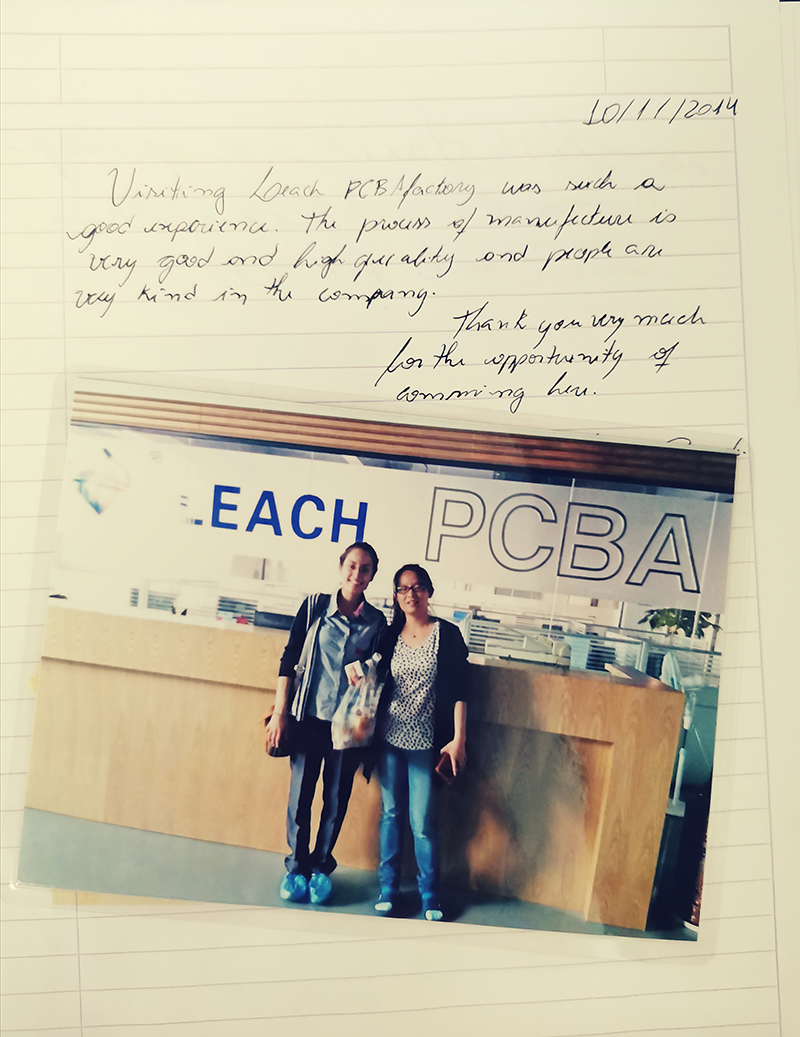 10/11/2014
Visiting Leach PCBA factory was such a
good experience. The process of manufacture is
very good and high quality and people are
very kind in the company.
Thank you very much
for the opportunity of
comming here.
LEACH PCBA